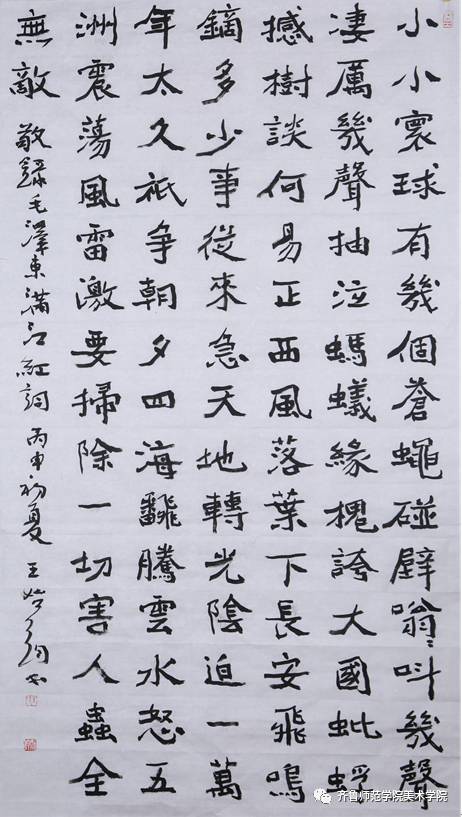 小小寰球有幾個蒼蠅碰壁嗡〻叫幾聲
凄厲幾聲抽泣螞蟻緣槐誇大國蚍蜉
撼樹談何易正西風落葉下長安飛鳴
鏑多少事從來急天地轉光陰迫一萬
年太久祇争朝夕四海飜騰雲水怒五
洲震蕩風雷激要掃除一切害人蟲全
無敵 敬錄毛澤東滿江紅詞 丙申初夏 王
齐鲁师范学院美术学院